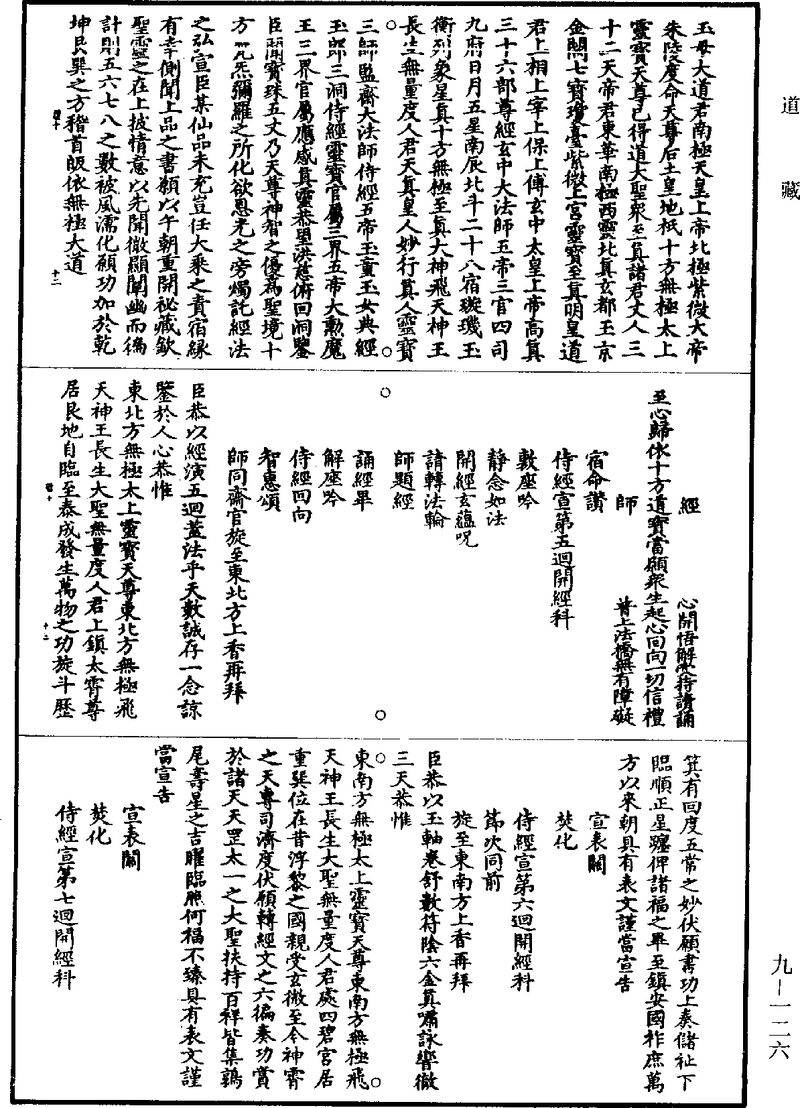 道藏
玉母大道君南極天皇上帝北極紫微大帝
朱陵度命天尊后土皇地祇十方無極太上
靈寶天尊已得道大聖眾至真諸君丈人三
十二天帝君東華南極西靈北真玄都玉京
金闕七寶瓊臺紫微上宮靈寶至真明皇道
君上相上宰上保上傅玄中太皇上帝高真
三十六部尊經玄中大法師五帝三官四司
九府日月五星南辰北斗二十八宿璇璣玉
衡列象星真十方無極至真大神飛天神王
長生無量度人君天真皇人妙行真人靈寶
三師監齋大法師侍經五帝玉童玉女典經
玉郎三洞侍經靈寶官屬三界五帝大勳魔
王三界官屬應感真靈恭望洪慈俯回洞鑒
臣聞寶珠五丈乃天尊神智之優為聖境十
方炁彌羅之所化欲恩光之旁燭託經法
之弘宣臣某仙品未充豈任大乘之責宿緣
有幸側聞上品之書願以午朝重開祕藏欽
聖靈之在上披情意以先聞微顯闡幽而徧
計則五六七八之數被風濡化願功加於乾
坤艮巽之方稽首皈依無極大道
至心歸依十方道寶當願眾生起心回向一切信禮
經 心開悟解受持讀誦
師 普上法橋無有障礙
宿命讚
侍經宣第五迴開經科
數座吟
靜念如法
開經玄蘊呪
請轉法輪
師題經
誦經畢
解座吟
侍經回向
智惠頌
師同齋官旋至東北方上香再拜
臣恭以經演五迴蓋法乎天數誠存一念諒
鑒於人心恭惟
東北方無極太上靈寶天尊東北方無極飛
天神王長生大聖無量度人君上鎮太霄尊
居艮地自臨至泰成發生萬物之功旋斗歷
箕有回度五常之妙伏願書功上奏儲祉下
臨順正星躔俾諸福之畢至鎮安國祚庶萬
方以來朝具有表文謹當宣告
宣表關
焚化
侍經宣第六迴開經科
節次同前
旋至東南方上香再拜
臣恭以玉軸卷舒數符陰六金真嘯詠響徹
三天恭惟
東南方無極太上靈寶天尊東南方無極飛
天神王長生大聖無量度人君處四碧宮居
重巽位在昔浮黎之國親受玄微至今神霄
之天專司濟度伏願轉經文之六徧奏功賞
於諸天天罡太一之大聖扶持百祥皆集鶉
尾壽星之吉曜臨照何福不臻具有表文謹
當宣告
宣表關
焚化
侍經宣第七迴開經科
九-一二六